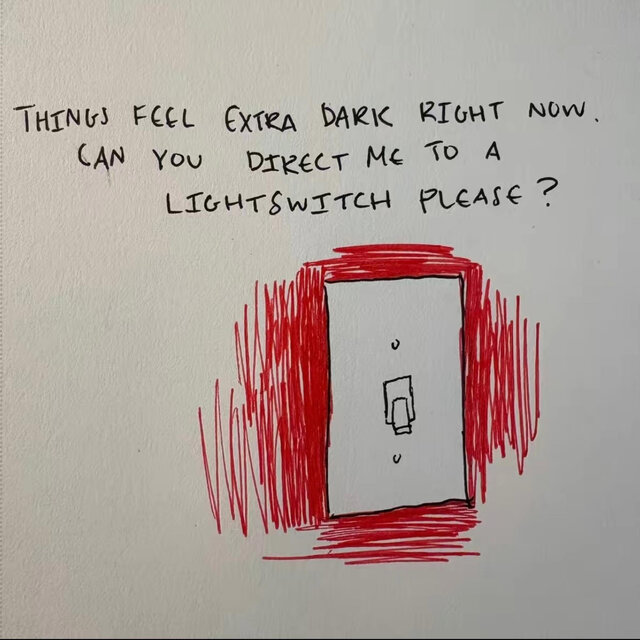 THINGS FEEL EXTRA DARK RIGHT NOW.
CAN YOU DIRECT ME TO A
LIGHTSWITCH PLEASE?